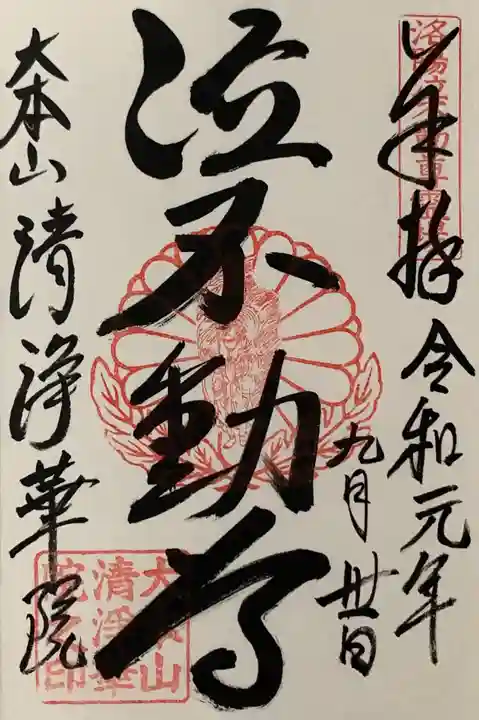 奉拝 令和元年
九月卅日
泣不動尊
大本山 清浄華院
大本山
清浄華
院之印